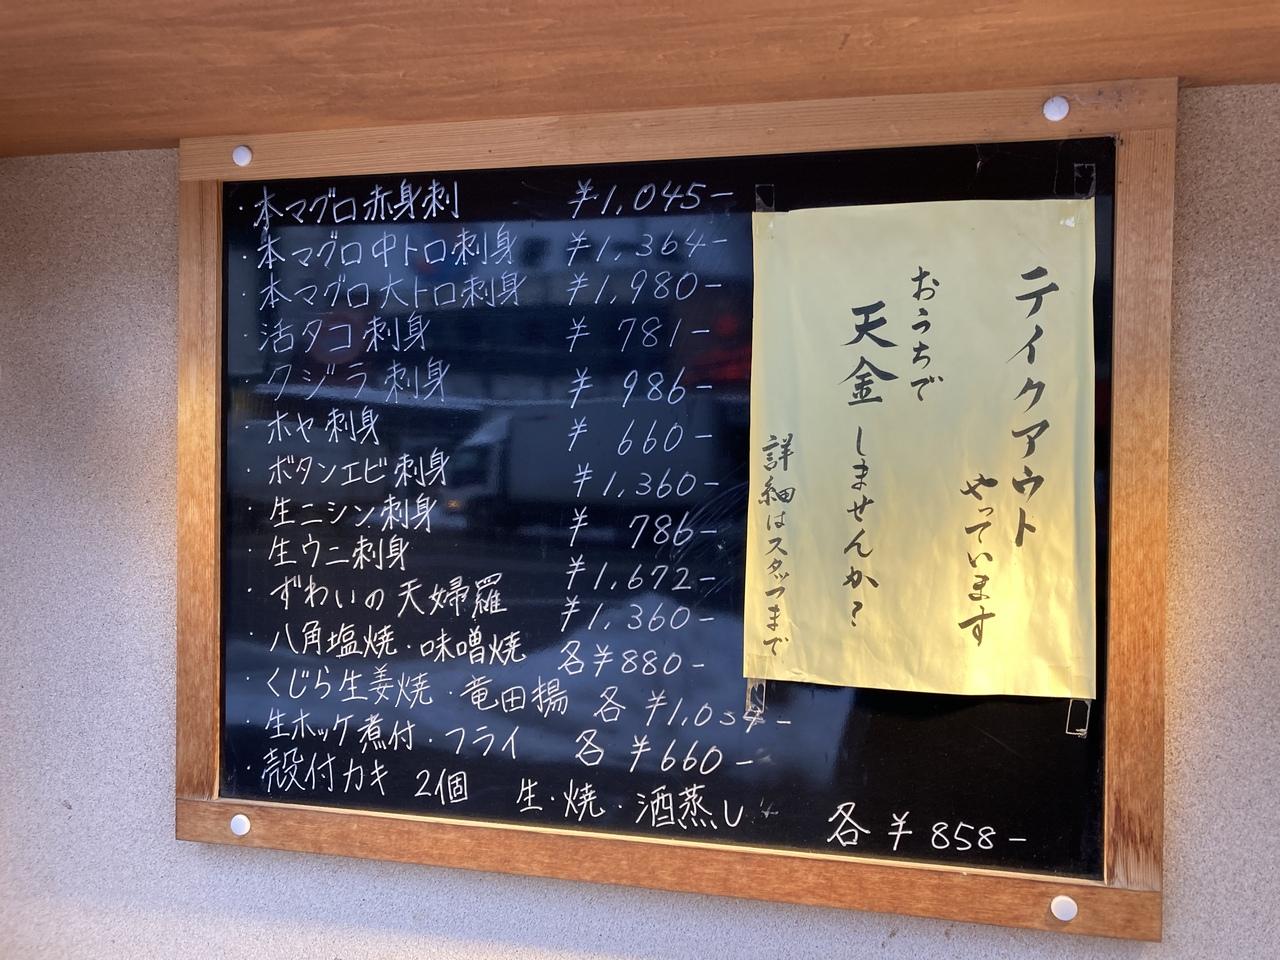 ・本マグロ赤身刺 ¥1,045-
・本マグロ中トロ刺身 ¥1,364-
・本マグロ大トロ刺身 ¥1,980-
・活タコ刺身 ¥781-
・クジラ刺身 ¥986-
・ホヤ刺身 ¥660-
・ボタンエビ刺身 ¥1,360-
・生ニシン刺身 ¥786-
・生ウニ刺身 ¥1,672-
・ずわいの天婦羅 ¥1,360-
・八角塩焼・味噌焼 各¥880-
・くじら生姜焼・竜田揚 各¥1,034-
・生ホッケ煮付・フライ 各¥660-
・殻付カキ 2個 生・焼・酒蒸し 各¥858-
テイクアウト
やっています
おうちで
天金しませんか?
詳細はスタッフまで